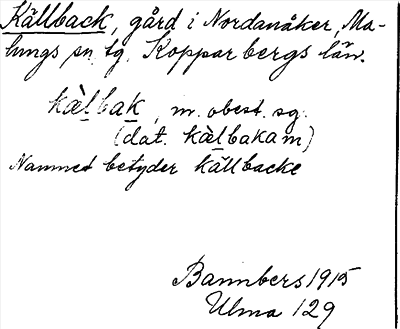 Källback, gård i Nordanåker, Ma-
lungs sn, tg, Kopparbergs län.
kàlbak, m. obest. sg.
(dat. kàlbakam)
Namnet betyder källbacke
Bannbers 1915
Ulma 129